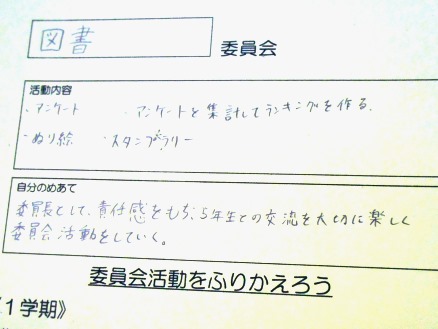 図書 委員会
活動内容
・アンケート ・アンケートを集計してランキングを作る。
・ぬり絵 ・スタンプラリー
自分のめあて
委員長として、責任感をもち、5年生との交流を大切に楽しく
委員会活動をしていく。
委員会活動をふりかえろう
《1学期》